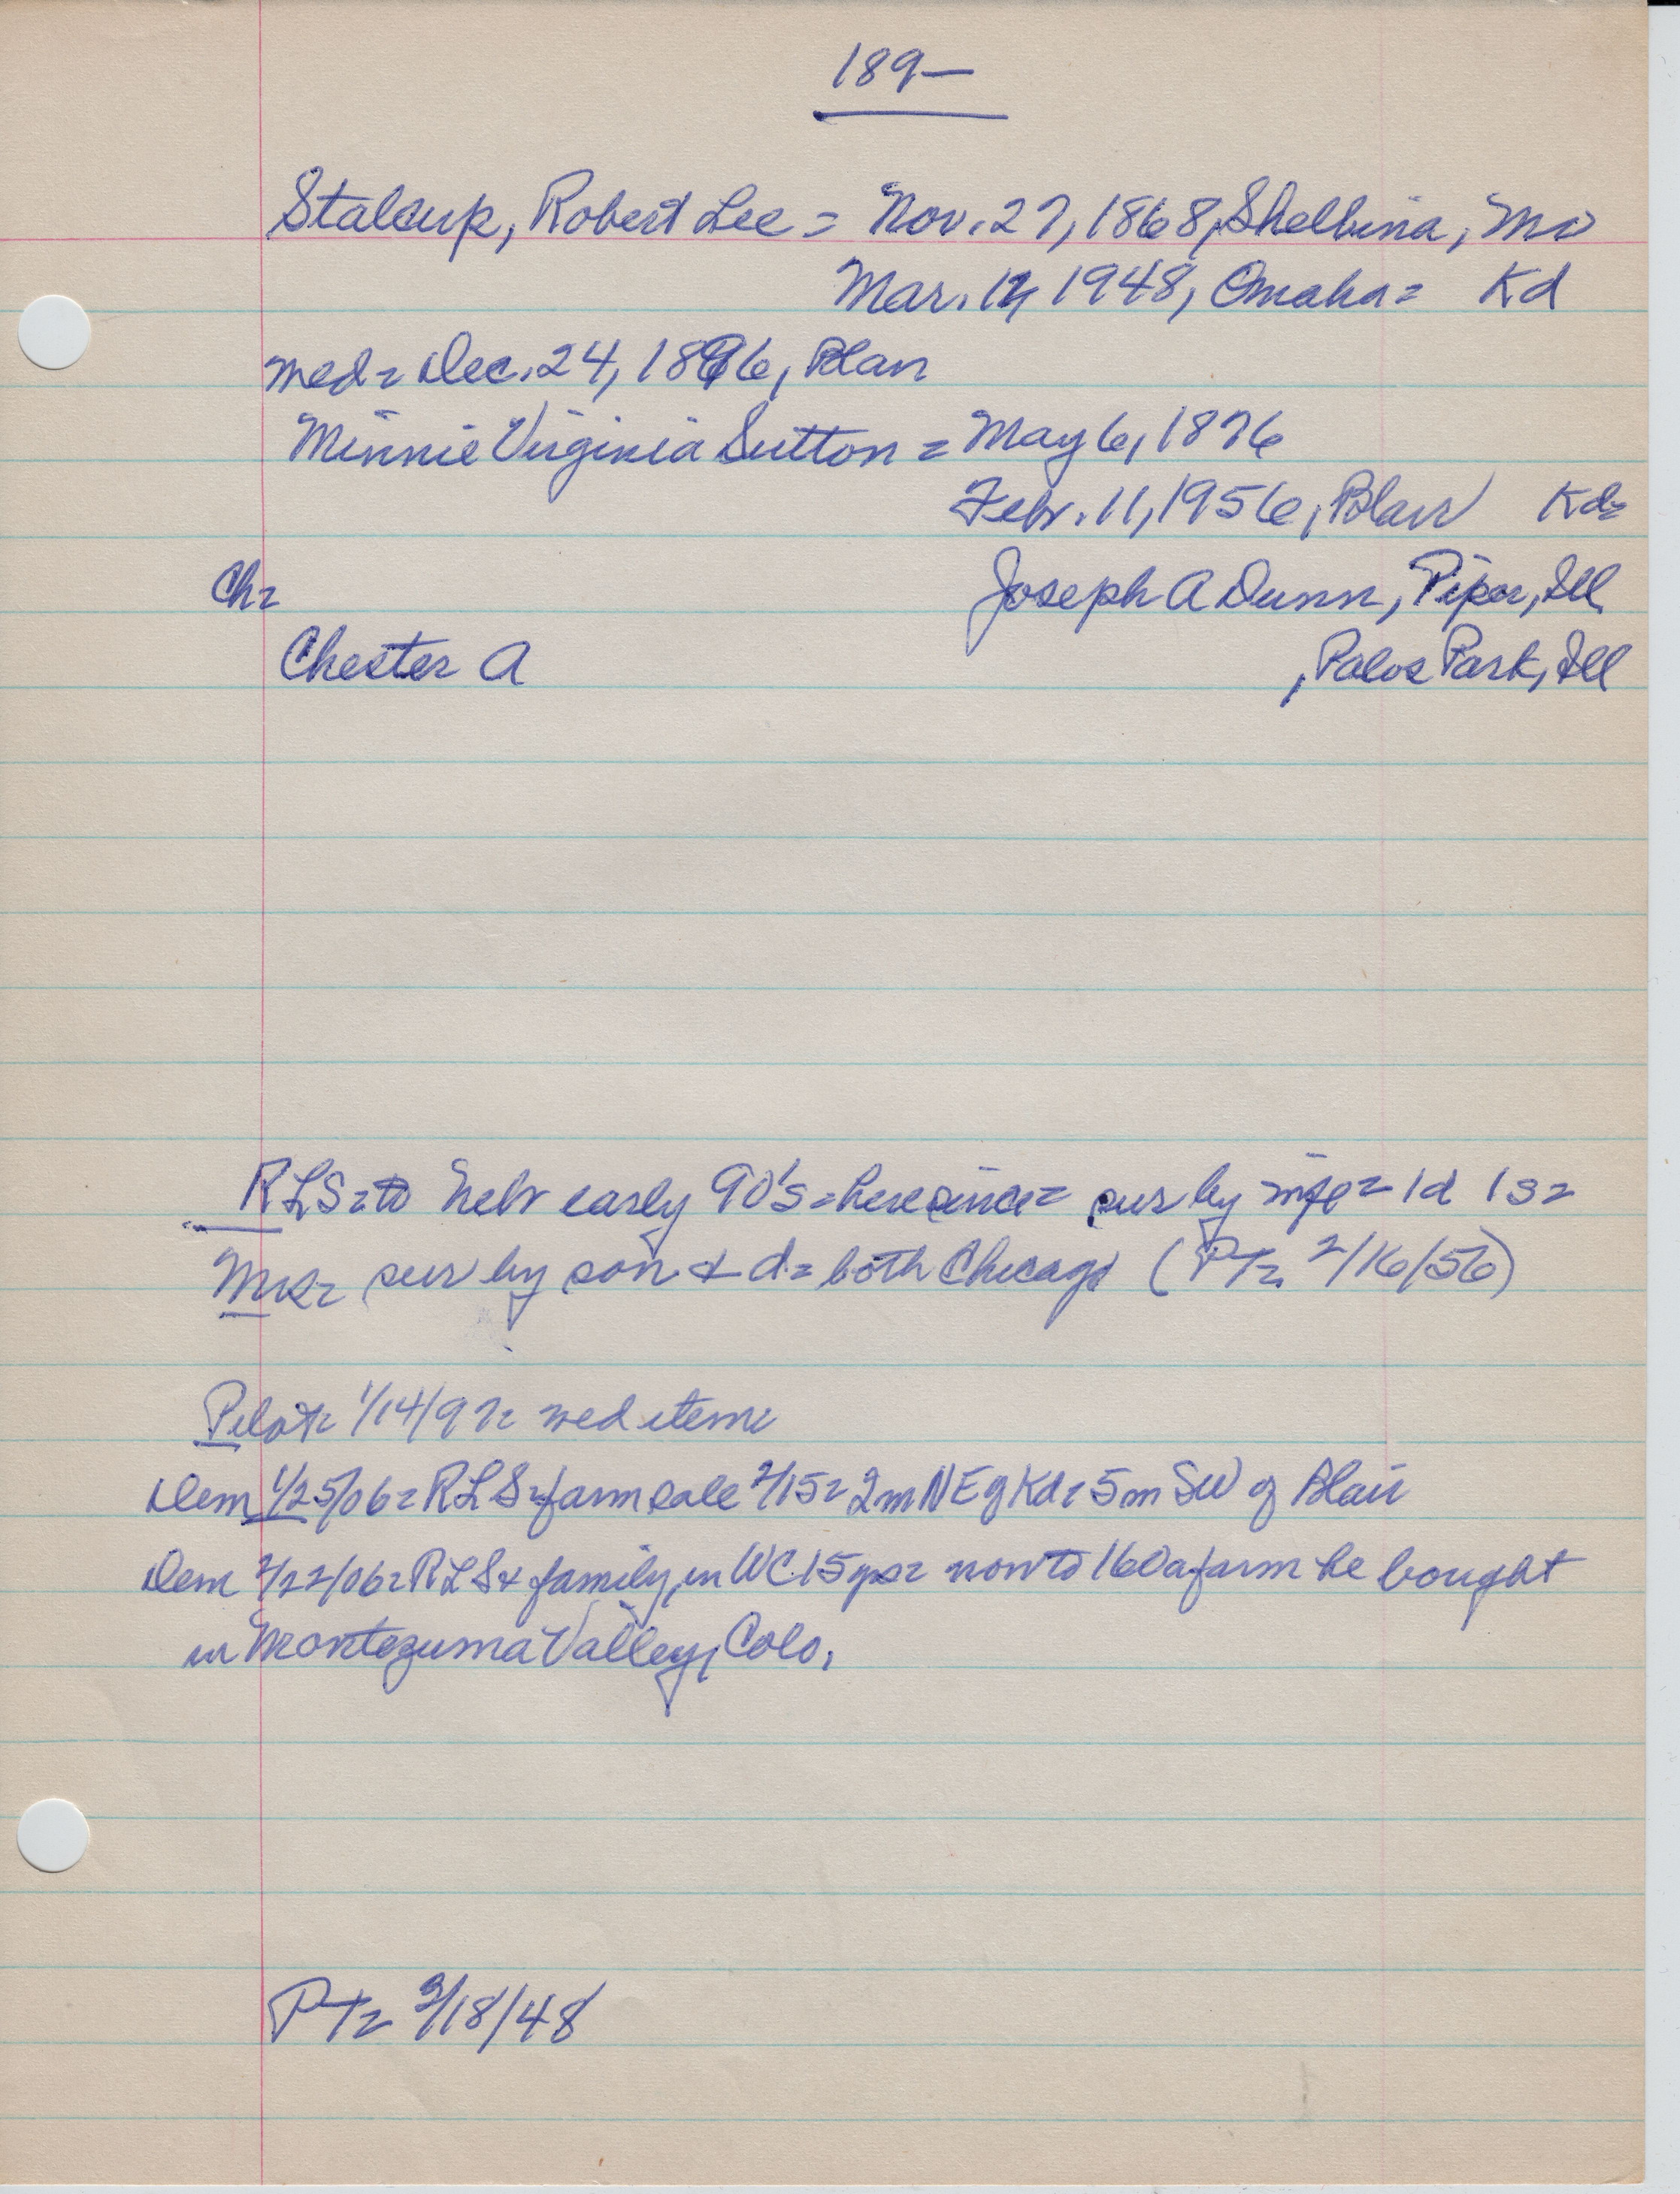 189—
Stalcup, Robert Lee = Nov. 27, 1868, Shelbina, Mo
Mar. 12, 1948, Omaha = Kd
med = Dec. 24, 1896, Blair
Minnie Virginia Sutton = May 6, 1876
Febr. 11, 1956, Blair Kd=
Ch= Joseph A Dunn, Piper, Ill
Chester A , Palos Park, Ill
RLS = to Nebr early 90's = here since = sur by wife = 1d 1s =
Mrs = sur by son & d = both Chicago (PT= 2/16/56)
Pilot = 1/14/97 = wed item
Dem 1/25/06 = RLS = farm sale 2/15 = 2m NE of Kd = 5m SW of Blair
Dem 2/22/06 = RLS & family, in WC 15 yrs = now to 160a farm he bought
in Montezuma Valley, Colo.
PT= 3/18/48